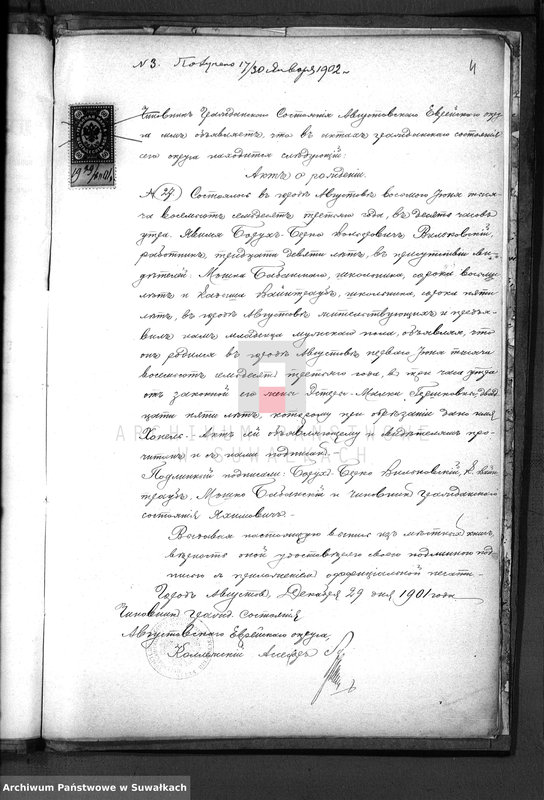 N 3. Получено 17/30 Января 1902 г.
4
Чиновник Гражданского Состояния Августовского Еврейского окру-
га сим объявляет, что в актах гражданского состояния
его округа находится следующий:
Акт о рождении.
Состоялось в городе Августове восьмого Июня тыся-
ча восемьсот семьдесят третьего года, в десять часов
утра. Явился Борух-Берко Вильковский,
работник, тридцати девяти лет, в присутствии сви-
детелей: Мошка школьника, сорока восьми
лет и Вайнтрауб, школьника, сорока пяти
лет, в городе Августове жительствующих и предъя-
вил нам младенца мужского пола, объявляя, что
он родился в городе Августове первого Июня тысяча
восемьсот семьдесят третьего года, в три часа утра
от законной его жены Эстеры-Малки двад-
цати пяти лет, которому при обрезании дано имя
Акт сей объявляющему и свидетелям про-
читан и с нами подписан.
Подлинный подписали: Борух-Берко Вильковский, К. Вайн-
трауб, Мошко и Чиновник гражданского
состояния
настоящую выпись из местных книг,
верность оной удостоверяю своею подлинною под-
писью с приложением официальной печати.
Город Августов, Декабря 29 дня 1901 года
Чиновник гражд. Состояния
Августовского Еврейского округа,
Коллежский Асессор
ARCHIWUM PAŃSTWOWE
W SUWAŁKACH
Archiwum Państwowe w Suwałkach